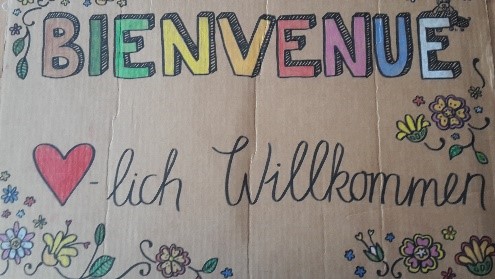 BIENVENUE
❤-lich Willkommen